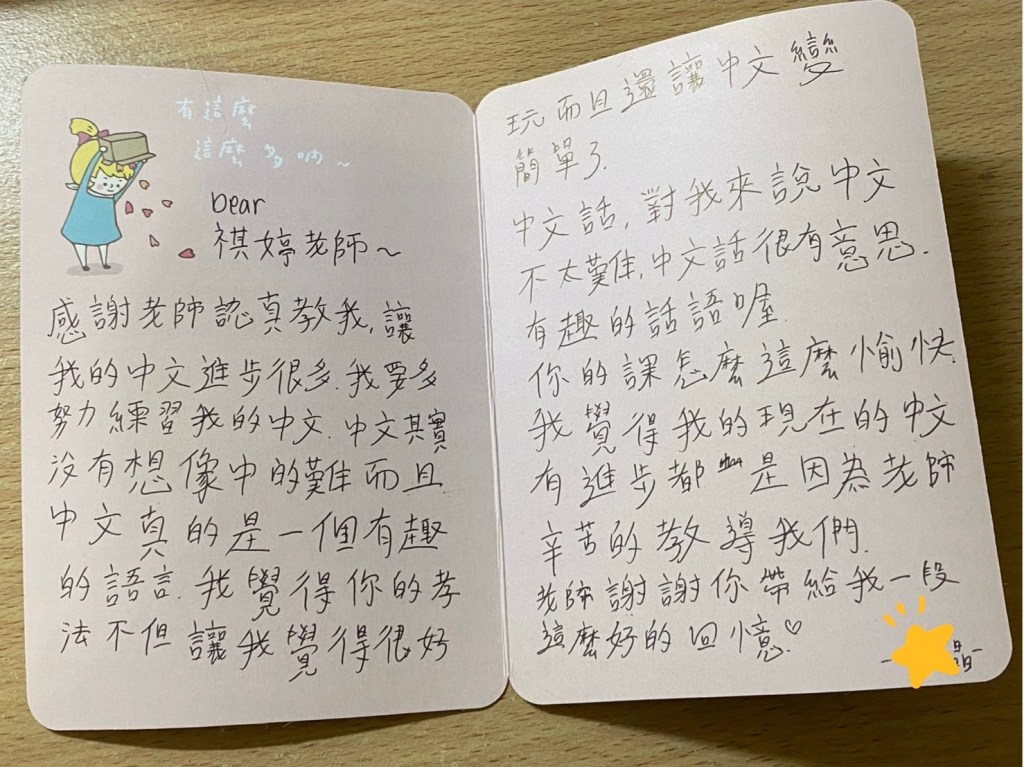 有這麼
這麼多吶~
Dear
祺婷老師~
感謝老師認真教我,讓
我的中文進步很多.我要多
努力練習我的中文.中文其實
沒有想像中的難而且
中文真的是一個有趣
的語言.我覺得你的孝
法不但讓我覺得很好
玩而且還讓中文變
簡單了.
中文話,對我來說中文
不太難,中文話很有意思.
有趣的話語喔.
你的課怎麼這麼愉快.
我覺得我的現在的中文
有進步都是因為老師
辛苦的教導我們.
老師謝謝你帶給我一段
這麼好的回憶♡